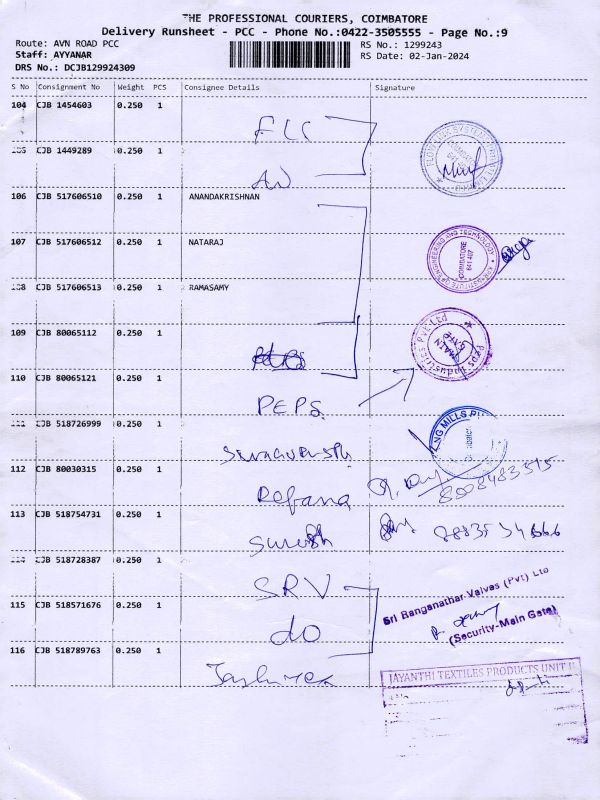 THE PROFESSIONAL COURIERS, COIMBATORE
Delivery Runsheet - PCC - Phone No.:0422-3505555 - Page No.:9
Route: AVN ROAD PCC
Staff: AYYANAR
DRS No.: DCJB129924309
RS No.: 1299243
RS Date: 02-Jan-2024
S No Consignment No Weight PCS Consignee Details Signature
104 CJB 1454603 0.250 1
FLC
105 CJB 1449289 0.250 1
106 CJB 517606510 0.250 1 ANANDAKRISHNAN
107 CJB 517606512 0.250 1 NATARAJ
COIMBATORE
641 407
108 CJB 517606513 0.250 1 RAMASAMY
109 CJB 80065112 0.250 1
Peps Industries Pvt Ltd
MAIN
GATE
110 CJB 80065121 0.250 1
PEPS
111 CJB 518726999 0.250 1
112 CJB 80030315 0.250 1
113 CJB 518754731 0.250 1
Suresh
114 CJB 518728387 0.250 1
SRV
Sri Ranganathar Valves (Pvt) Ltd
(Security-Main Gate)
115 CJB 518571676 0.250 1
do
116 CJB 518789763 0.250 1
JAYANTHI TEXTILES PRODUCTS UNIT II